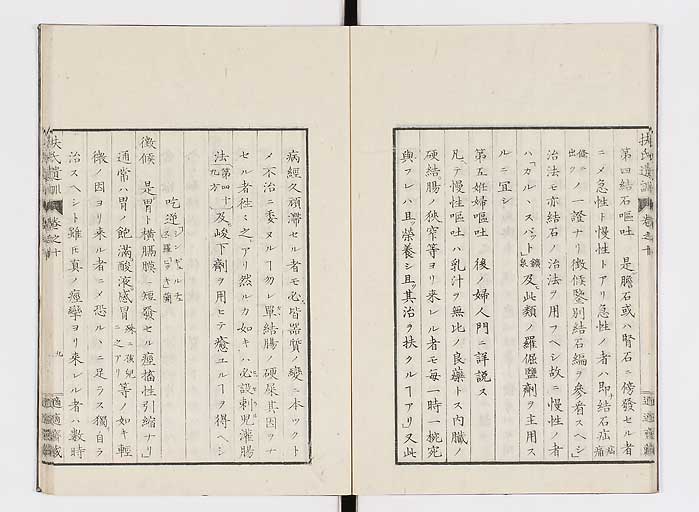 扶氏遺訓 巻之十
適適齋藏
第四結石嘔吐 是膽石或ハ腎石ニ傍發セル者
ニメ急性ト慢性トアリ急性ノ者ハ即結石疝 疝痛
條ニ出ツノ一證ナリ徴候鑒別結石編ヲ參看スヘシ
治法モ亦結石ノ治法ヲ用フヘシ故ニ慢性ノ者
ハ「カルヽスバット」鑛泉及ヒ此類ノ羅倔鹽劑ヲ主用ス
ルニ宜シ
第五姙婦嘔吐 後ノ婦人門ニ詳説ス
凡テ慢性嘔吐ハ乳汁ヲ無比ノ良藥トス内臓ノ
硬結腸ノ狹窄等ヨリ来レル者モ毎一時一椀宛
與フレハ且ツ榮養シ且ツ其治ヲ扶クルヿアリ又此
病經久頑滯セル者モ必ス皆器質ノ變ニ本ツクト
メ不治ニ委ヌルヿ勿レ單結腸ノ硬屎其因ヲナ
セル者徃々之アリ然ルカ如キハ必ス設刺兒灌腸
法 第四十九方 及峻下劑ヲ用ヒテ癒ユルヿヲ得ヘシ
吃逆
徴候 是胃ト横膈膜ト短發セル痙搐性引縮ナリ
通常ハ胃ノ飽滿酸液感冒 殊ニ孩兒ニ之アリ 等ノ如キ輕
微ノ因ヨリ来ル者ニメ恐ルヽニ足ラス獨自ラ
治スヘシト雖モ真ノ痙攣ヨリ来レル者ハ數時
扶氏遺訓 巻之十
九
適適齋藏